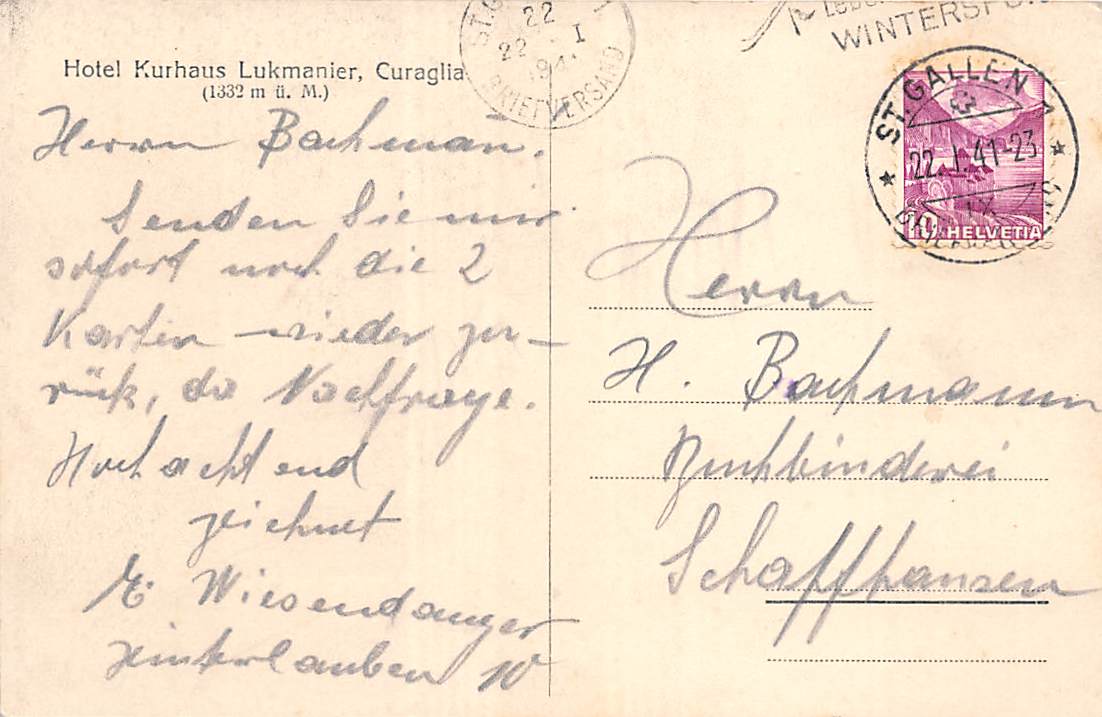 Hotel Kurhaus Lukmanier, Curaglia
(1332 m ü. M.)
Herrn Bachman.
Senden Sie mir
sofort noch die 2
Karten wieder zu-
rück, da Nachfrage.
Hochachtend
zeichnet
E. Wiesendanger
Hinterlauben 10
22
22 I
BRIEFVERSAND
WINTERSPO
ST. GALLEN 1
22.I.41-23
10 HELVETIA
Herrn
H. Bachmann
Buchbinderei
Schaffhausen